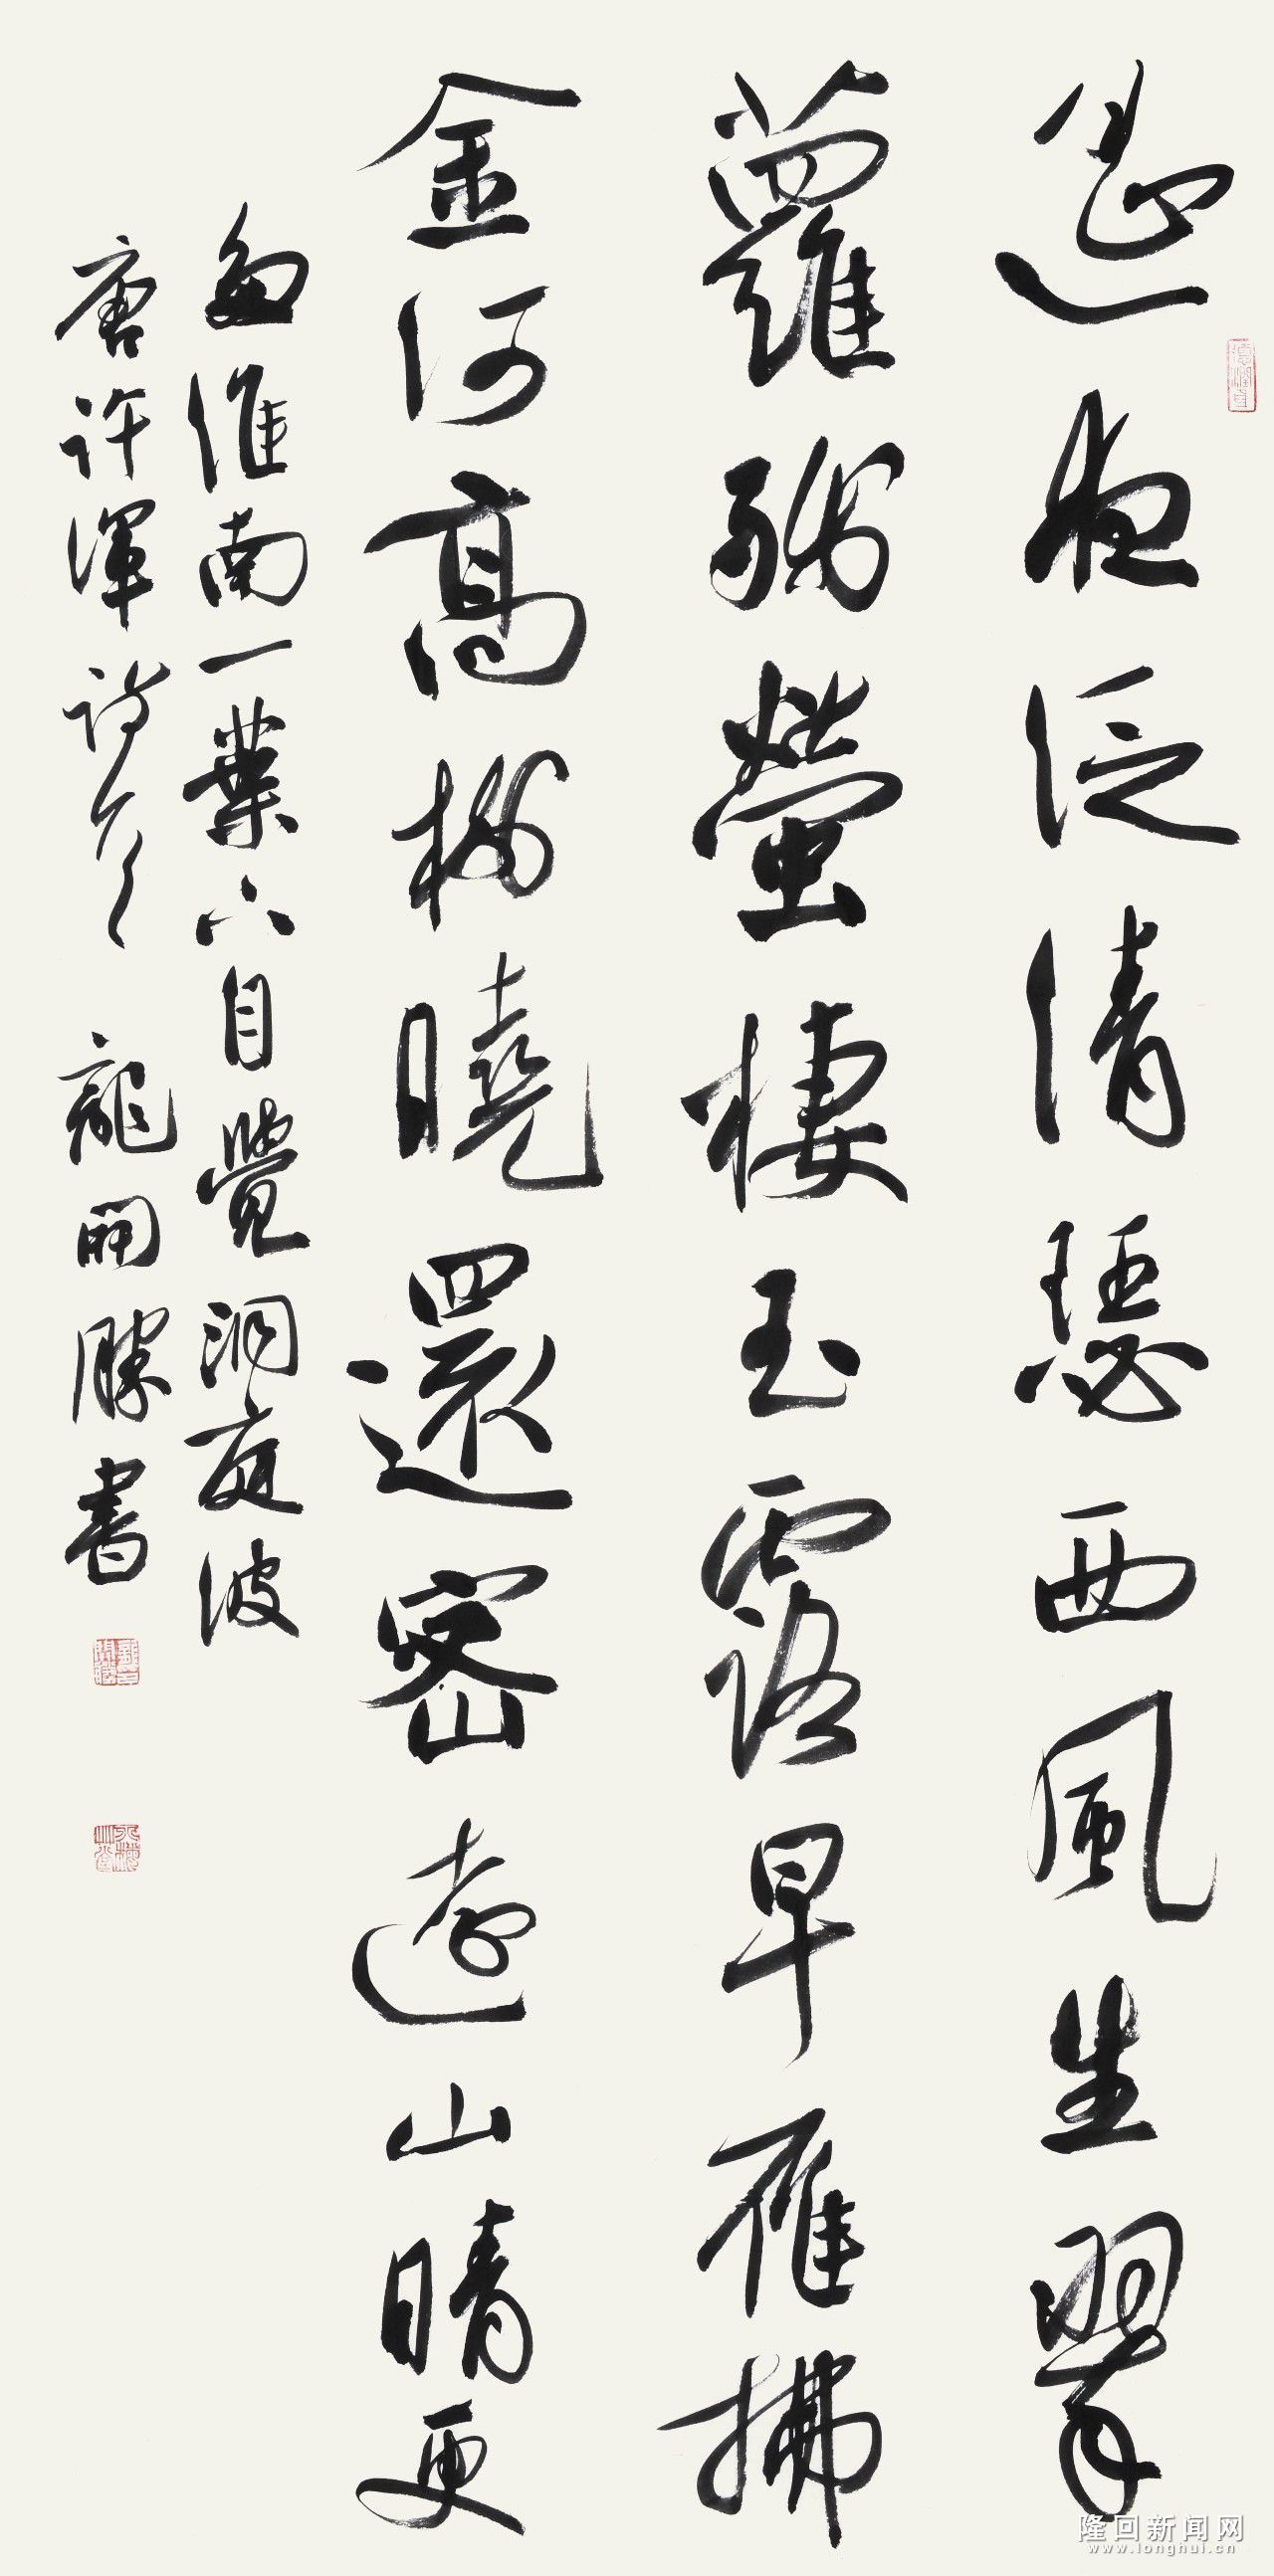 遙夜泛清瑟西風生翠
蘿殘螢棲玉露早雁拂
金河高樹曉還密遠山晴更
多淮南一葉下自覺洞庭波
唐許渾詩 龍開勝書
德潤身
隆回新闻网
www.longhui.cn